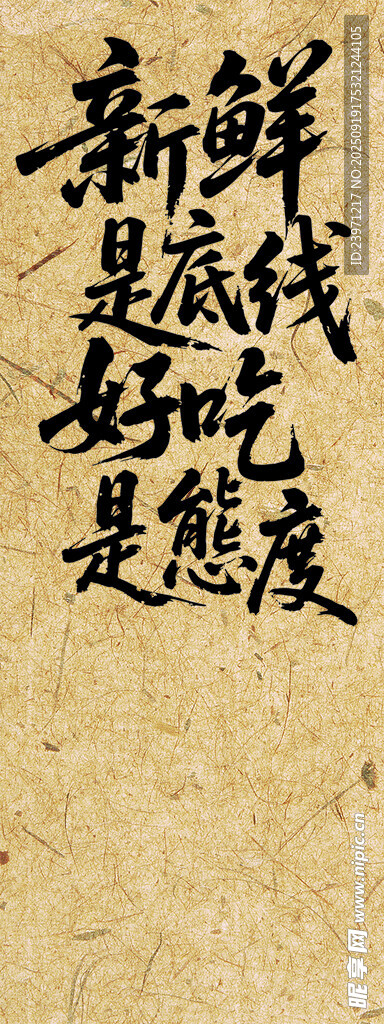 新鲜
是底线
好吃
是態度
ID:23971217 NO:20250919175321244105
昵享网 www.nipic.cn